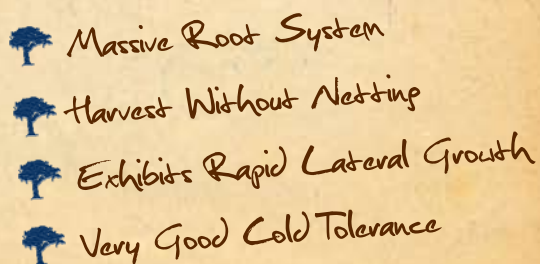 Massive Root System
Harvest Without Netting
Exhibits Rapid Lateral Growth
Very Good Cold Tolerance